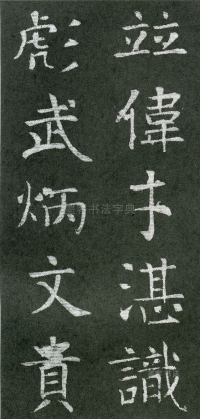 竝偉才湛識
彪武炳文貴
书法字典